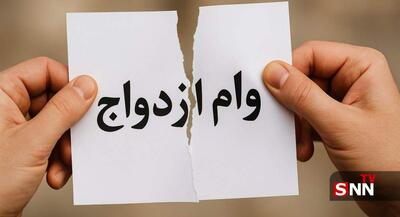 وام ازدواج
SNN TV